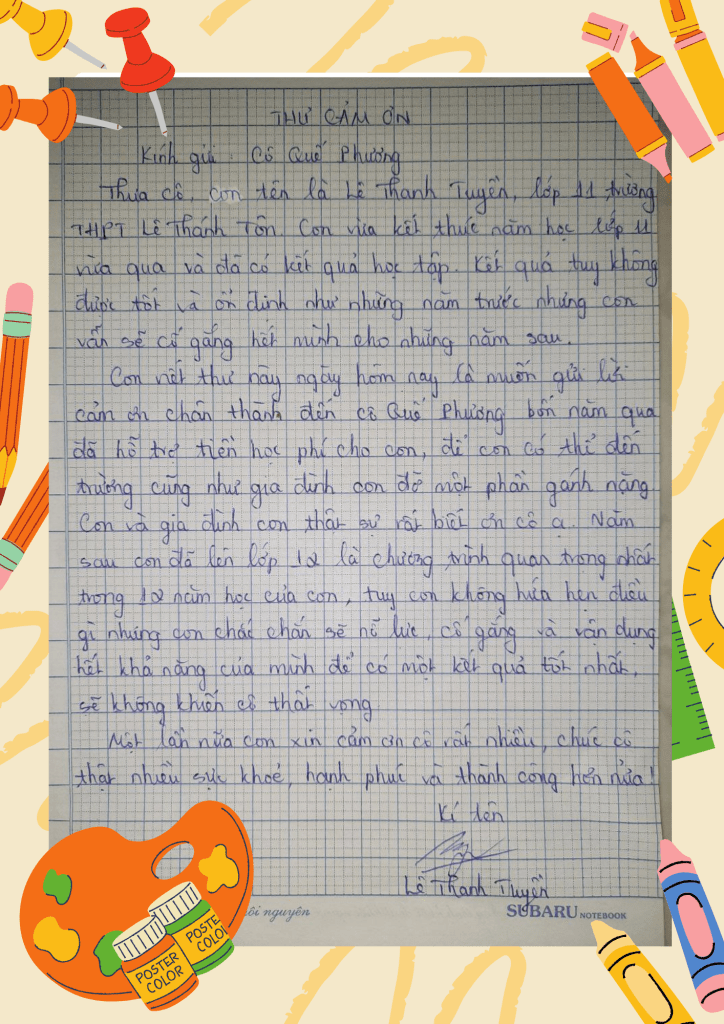 THƯ CẢM ƠN
Kính gửi : Cô Quế Phương
Thưa cô, con tên là Lê Thanh Tuyền, lớp 11, trường
THPT Lê Thánh Tôn. Con vừa kết thúc năm học lớp 11
vừa qua và đã có kết quả học tập. Kết quả tuy không
được tốt và ổn định như những năm trước nhưng con
vẫn sẽ cố gắng hết mình cho những năm sau.
Con viết thư này ngày hôm nay là muốn gửi lời
cảm ơn chân thành đến cô Quế Phương bốn năm qua
đã hỗ trợ tiền học phí cho con, để con có thể đến
trường cũng như gia đình con đỡ một phần gánh nặng
Con và gia đình con thật sự rất biết ơn cô ạ. Năm
sau con đã lên lớp 12 là chương trình quan trọng nhất
trong 12 năm học của con, tuy con không hứa hẹn điều
gì nhưng con chắc chắn sẽ nỗ lực, cố gắng và vận dụng
hết khả năng của mình để có một kết quả tốt nhất,
sẽ không khiến cô thất vọng.
Một lần nữa con xin cảm ơn cô rất nhiều, chúc cô
thật nhiều sức khoẻ, hạnh phúc và thành công hơn nữa!
Kí tên
Lê Thanh Tuyền
ôi nguyên
SUBARU NOTEBOOK
POSTER COLOR
POSTE COLO